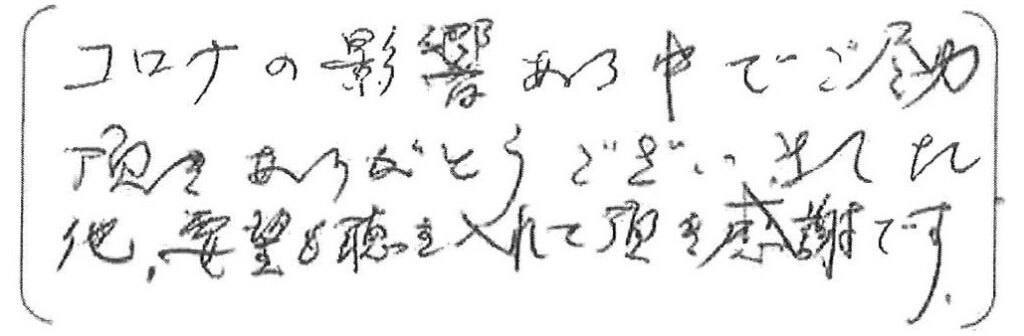 コロナの影響ある中でご尽力
頂きありがとうございました
他、要望も聴き入れて頂き感謝です。